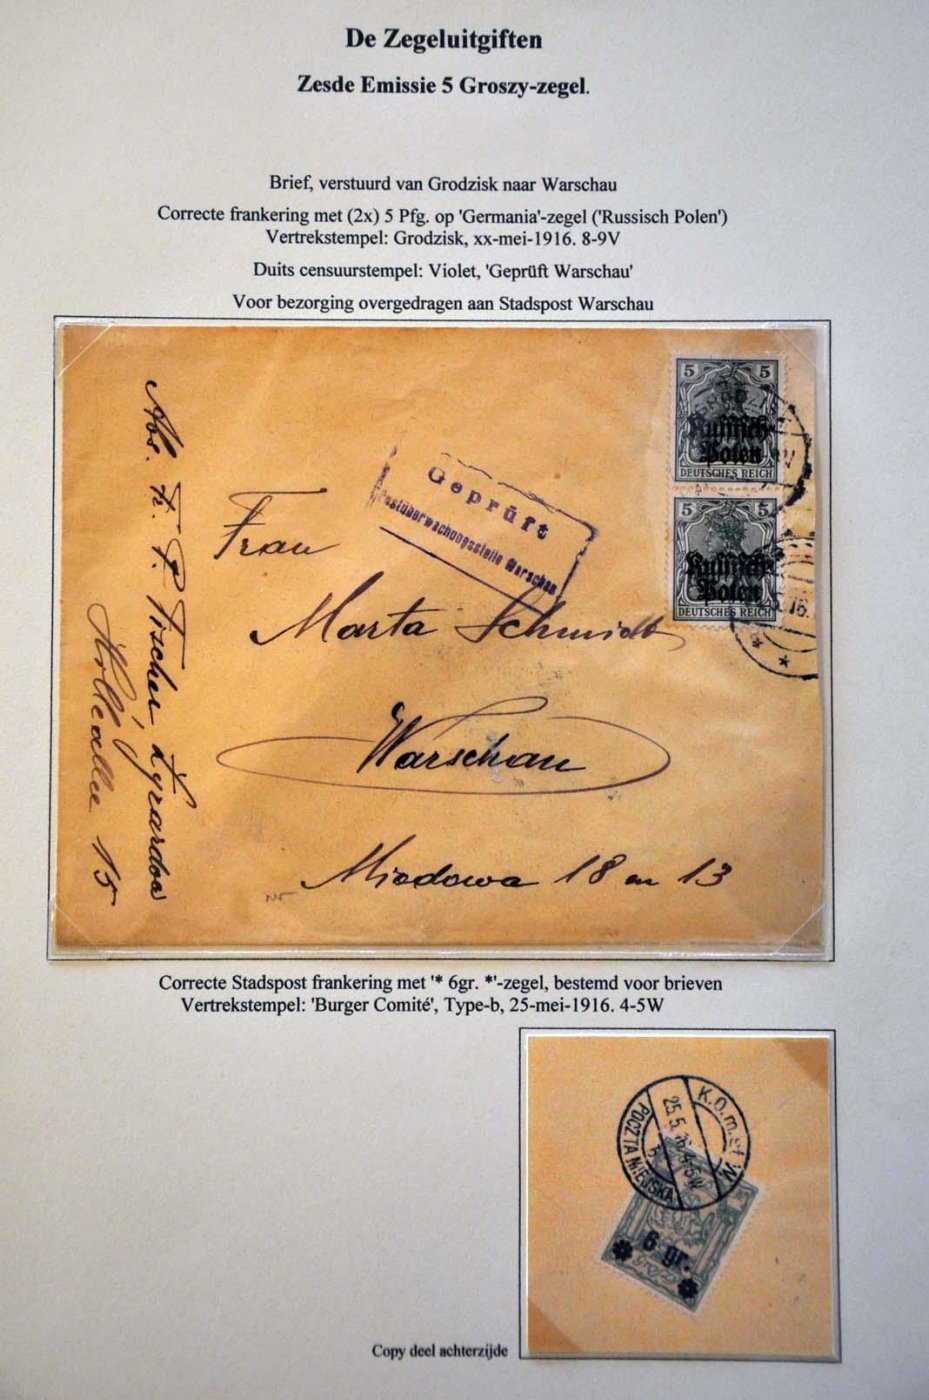 De Zegeluitgiften
Zesde Emissie 5 Groszy-zegel.
Brief, verstuurd van Grodzisk naar Warschau
Correcte frankering met (2x) 5 Pfg. op 'Germania'-zegel ('Russisch Polen')
Vertrekstempel: Grodzisk, xx-mei-1916. 8-9V
Duits censuurstempel: Violet, 'Geprüft Warschau'
Voor bezorging overgedragen aan Stadspost Warschau
5 5
Russisch-
Polen
DEUTSCHES REICH
5 5
Russisch-
Polen
DEUTSCHES REICH
Geprüft
Postüberwachungsstelle Warschau
Frau
Marta Schmidt
Warschau
Miodowa 18 m 13
Abs.
15
Correcte Stadspost frankering met '* 6gr. *'-zegel, bestemd voor brieven
Vertrekstempel: 'Burger Comité', Type-b, 25-mei-1916. 4-5W
K.O.m.st.W.
25.5.16.4-5W
POCZTA MIEJSKA
6 gr.
Copy deel achterzijde